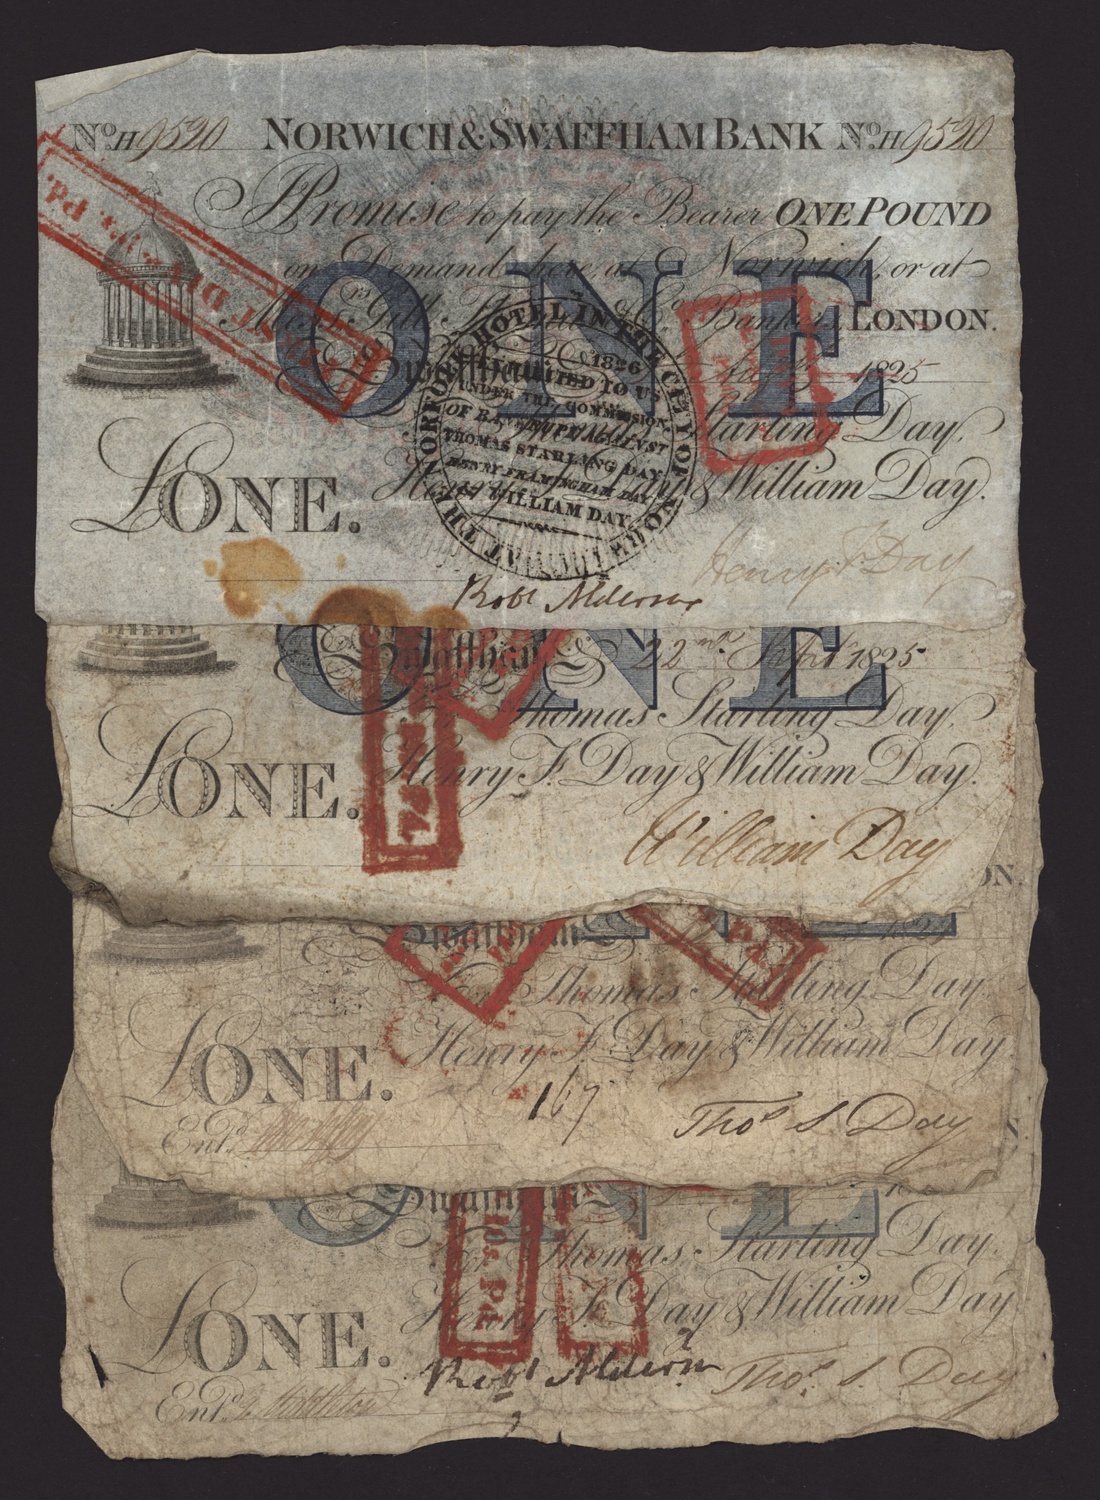 No. H9520 NORWICH & SWAFFHAM BANK No. H9520
I Promise to pay the Bearer ONE POUND
on Demand here, at Norwich, or at
Bankers, LONDON.
1825
Starling Day,
Henry & William Day.
ONE
NORFOLK HOTEL IN THE CITY OF NORWICH AT THE
1826
EXHIBITED TO US
UNDER THE COMMISSION
OF BANKRUPT AGAINST
THOMAS STARLING DAY
HENRY FRAMINGHAM DAY
WILLIAM DAY.
£ONE.
Henry F Day
Robt Alderson
ONE
Swaffham 22nd 1825
Thomas Starling Day,
Henry F. Day & William Day.
£ONE.
William Day
ON.
Swaffham
Thomas Starling Day
Henry F. Day & William Day
£ONE.
167
Entd.
Thos S Day
Pd.
Thomas Starling Day.
Henry F. Day & William Day
£ONE.
10s. Pd.
Robt Alderson
Entd.
Thos. S. Day